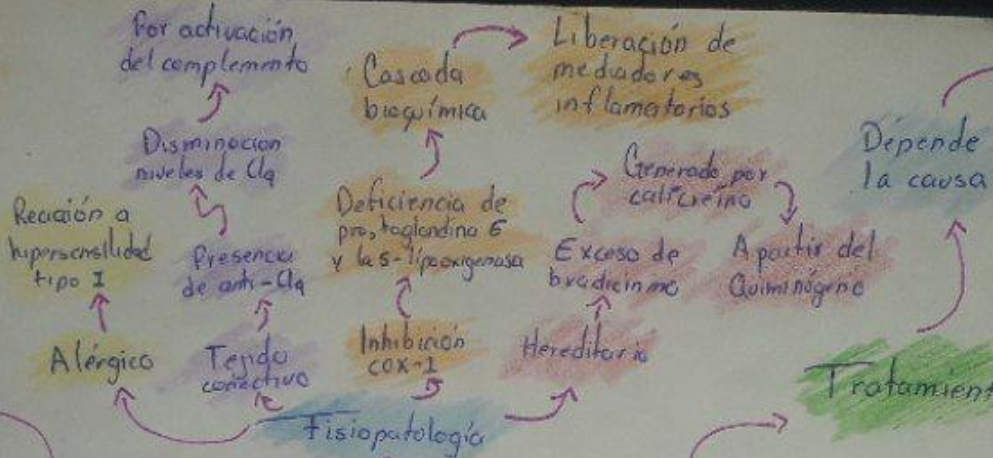 Por activación
del complemento
Disminucion
niveles de C1q
Presencia
de anti-C1q
Tejido
conectivo
Reacción a
hipersensilidad
tipo I
Alérgico
Cascada
bioquímica
Liberación de
mediadores
inflamatorios
Deficiencia de
prostaglandina E
y la 5-lipooxigenasa
Inhibición
cox-1
Generado por
calicreína
Exceso de
bradicinina
A partir del
Quiminógeno
Hereditario
Fisiopatología
Depende
la causa
Tratamient